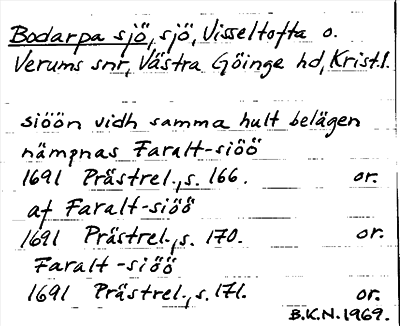 Bodarpa sjö, sjö, Visseltofta o.
Verums snr, Västra Göinge hd, Krist.l.
siöön vidh samma hult belägen
nämpnas Faralt-siöö
1691 Prästrel., s. 166. or.
af Faralt-siöö
1691 Prästrel., s. 170. or.
Faralt-siöö
1691 Prästrel., s. 171. or.
B.K.N. 1969.